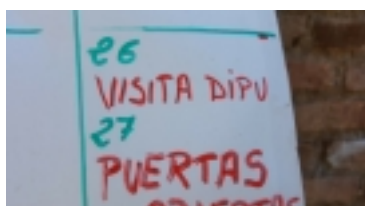 26
VISITA DIPU
27
PUERTAS